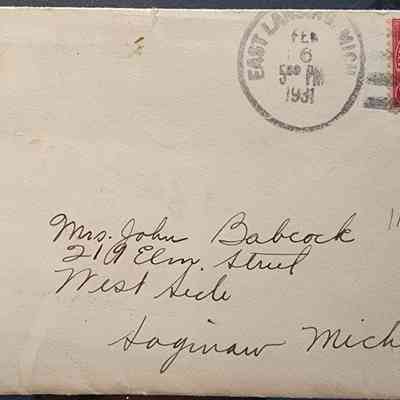 EAST LANSING, MICH
FEB
6
5 00 PM
1931
Mrs. John Babcock
219 Elm. Street
West Side
Saginaw Mich